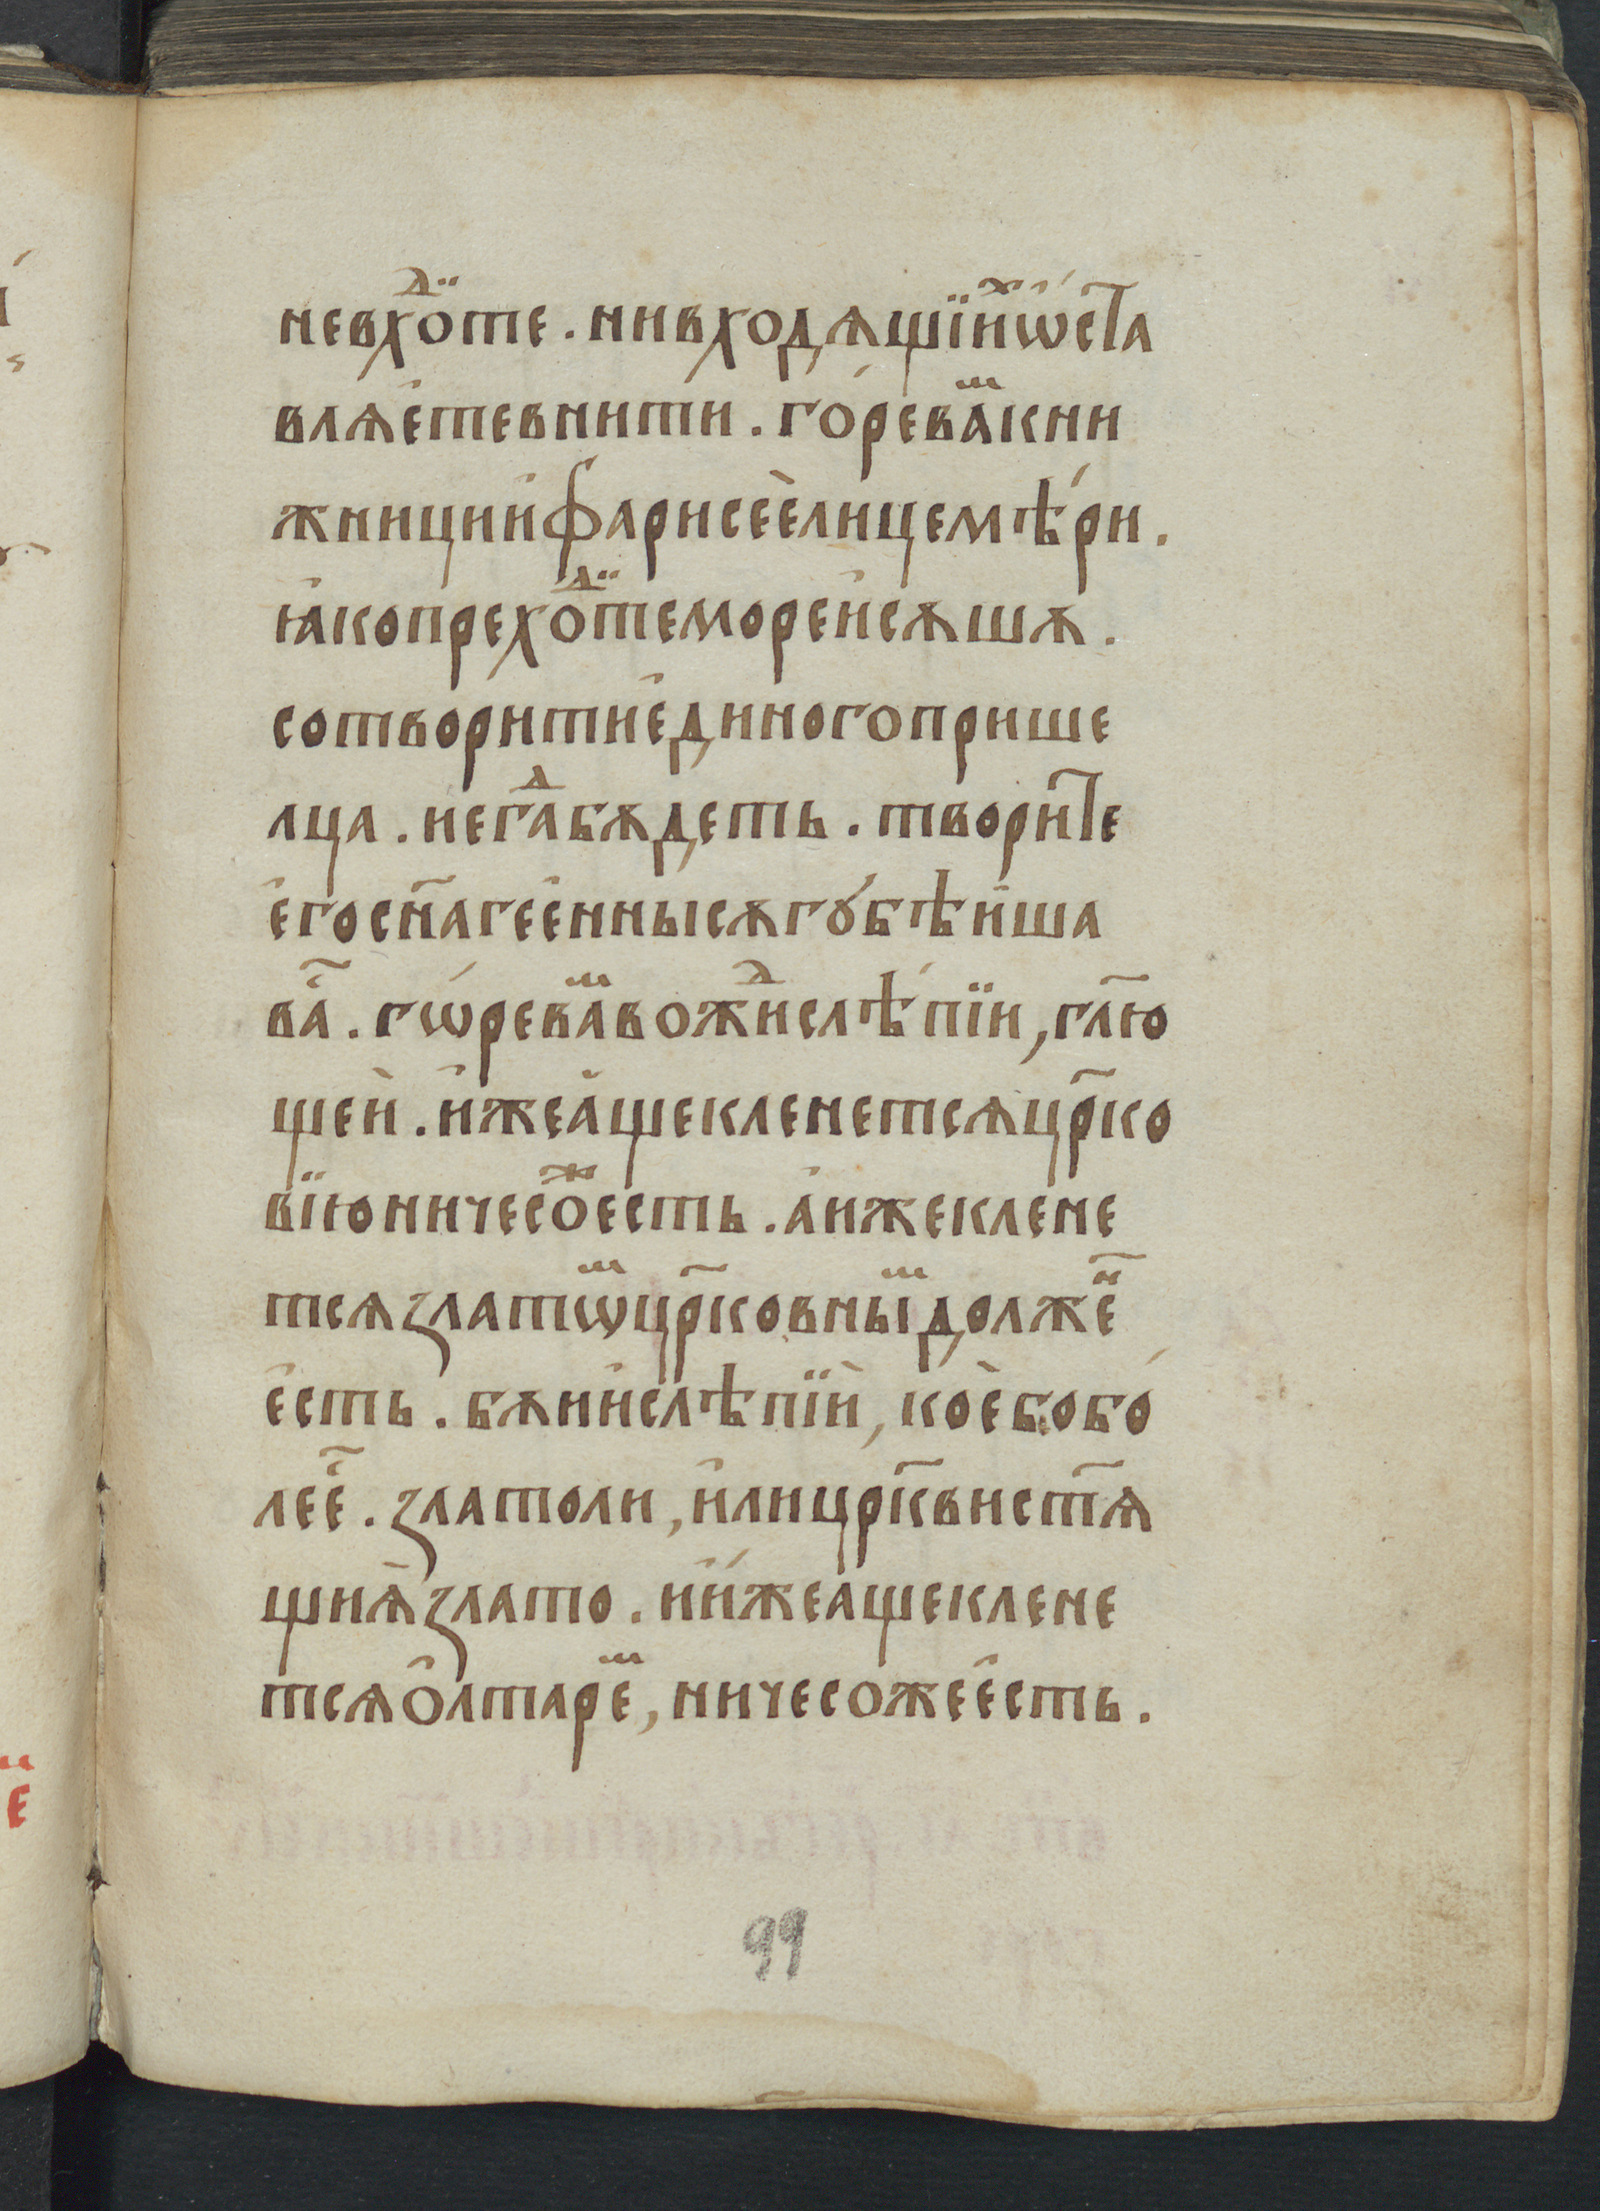 невхо́ⷣ҇те . нивходѧщїиⷯ҇ѡ҆ста
влѧе҆тевнити . го́ревⷨакни
жниции҆фарисее҆лицемѣ́ри .
ꙗ҆копрехоⷣ҇темореи҆сѫшѫ .
сотворитие҆диногоприше
лца . иегⷣабѫдеть . творите
е҆госн҃агееннысѫгꙋ́бѣиша
ва҃ . гѡ́ревⷨавожⷣислѣ́пїи , гл҃ю
щеи . и҆жеа҆щекленетсѧцр҃ко
вїюничесоⷤесть . а҆ижеклене
тсѧзлатѡⷨцр҃ковныⷨдолжеⷩ҇
е҆сть . бѫи҆и҆слѣпїи , кое҆бобо́
лее҃ . златоли , и҆лицр҃квист҃ѧ
щиѧ҆злато . ии҆́жеащеклене
тсѧо҆лтареⷨ , ничесожее҆сть .
99